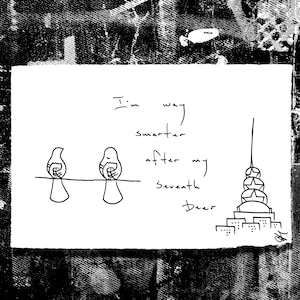 I'm way
smarter
after my
seventh
beer